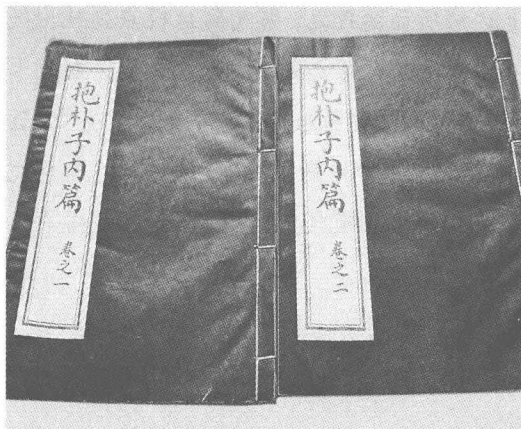 抱朴子内篇
卷之一
抱朴子内篇
卷之二